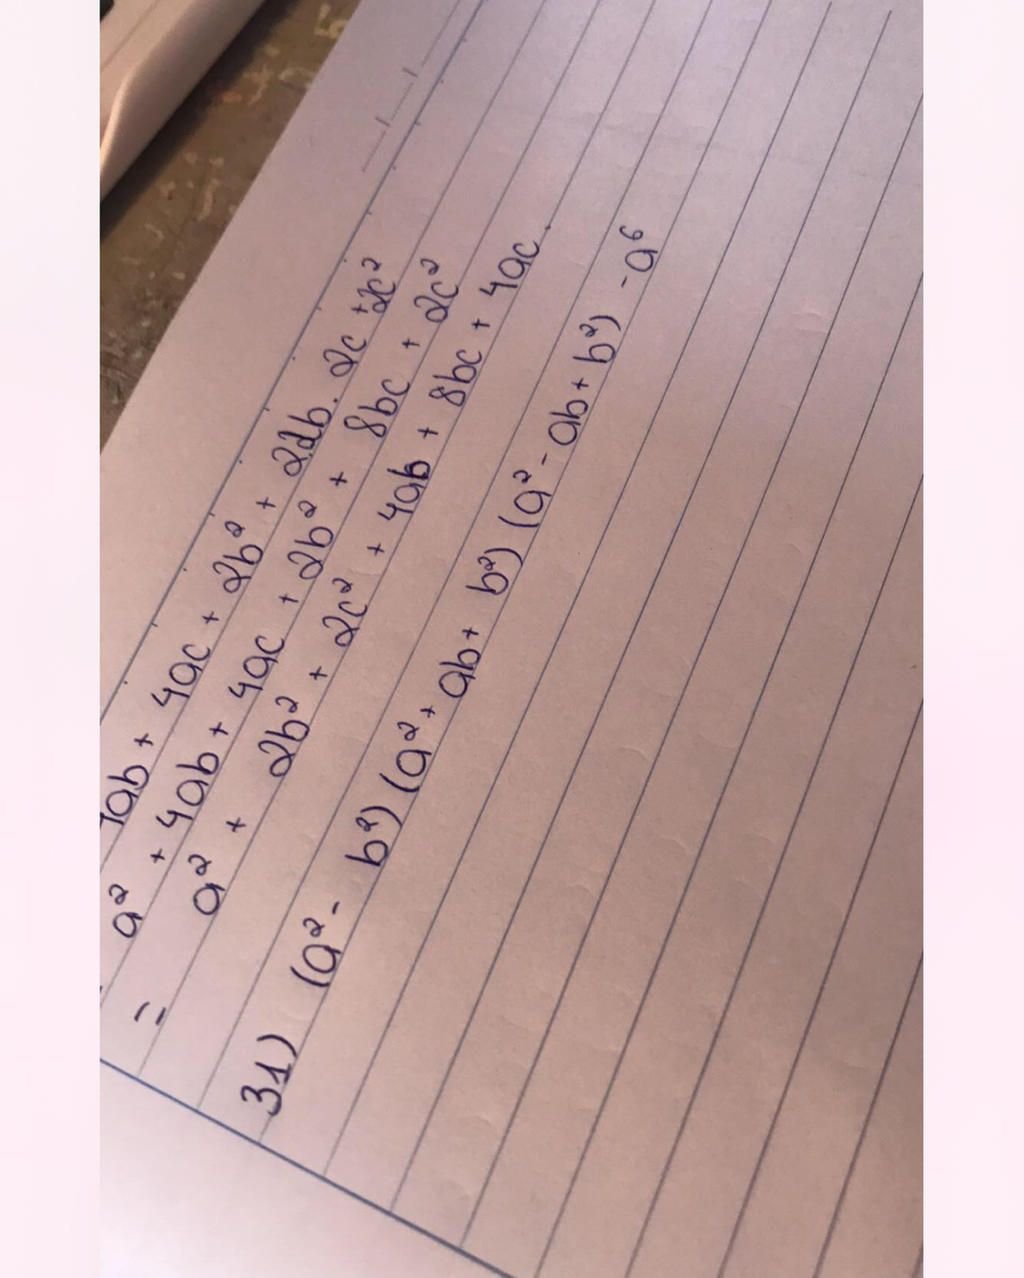 a² + 4ab + 4ac + 2b² + 2.2b. 2c + 2c²
= a² + 4ab + 4ac + 2b² + 8bc + 2c²
a² + 2b² + 2c² + 4ab + 8bc + 4ac.
31) (a² - b²) (a² + ab + b²) (a² - ab + b²) - a⁶